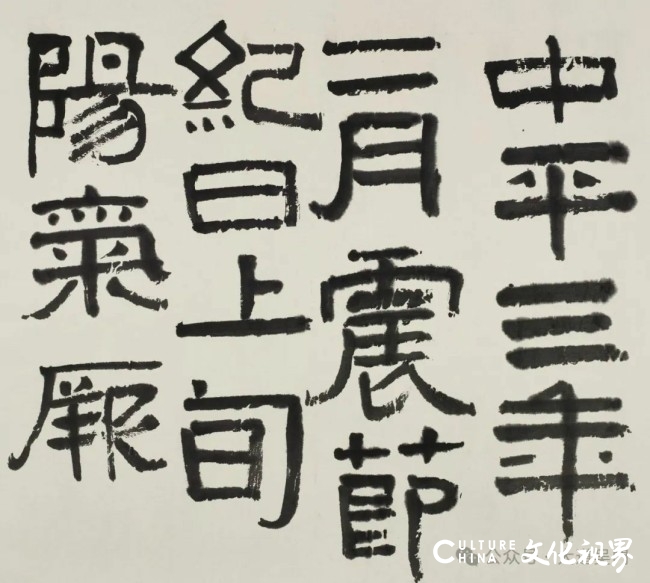 中平三年
二月震節
紀日上旬
陽氣厥
CULTURE
CHINA
文化视界
公众号